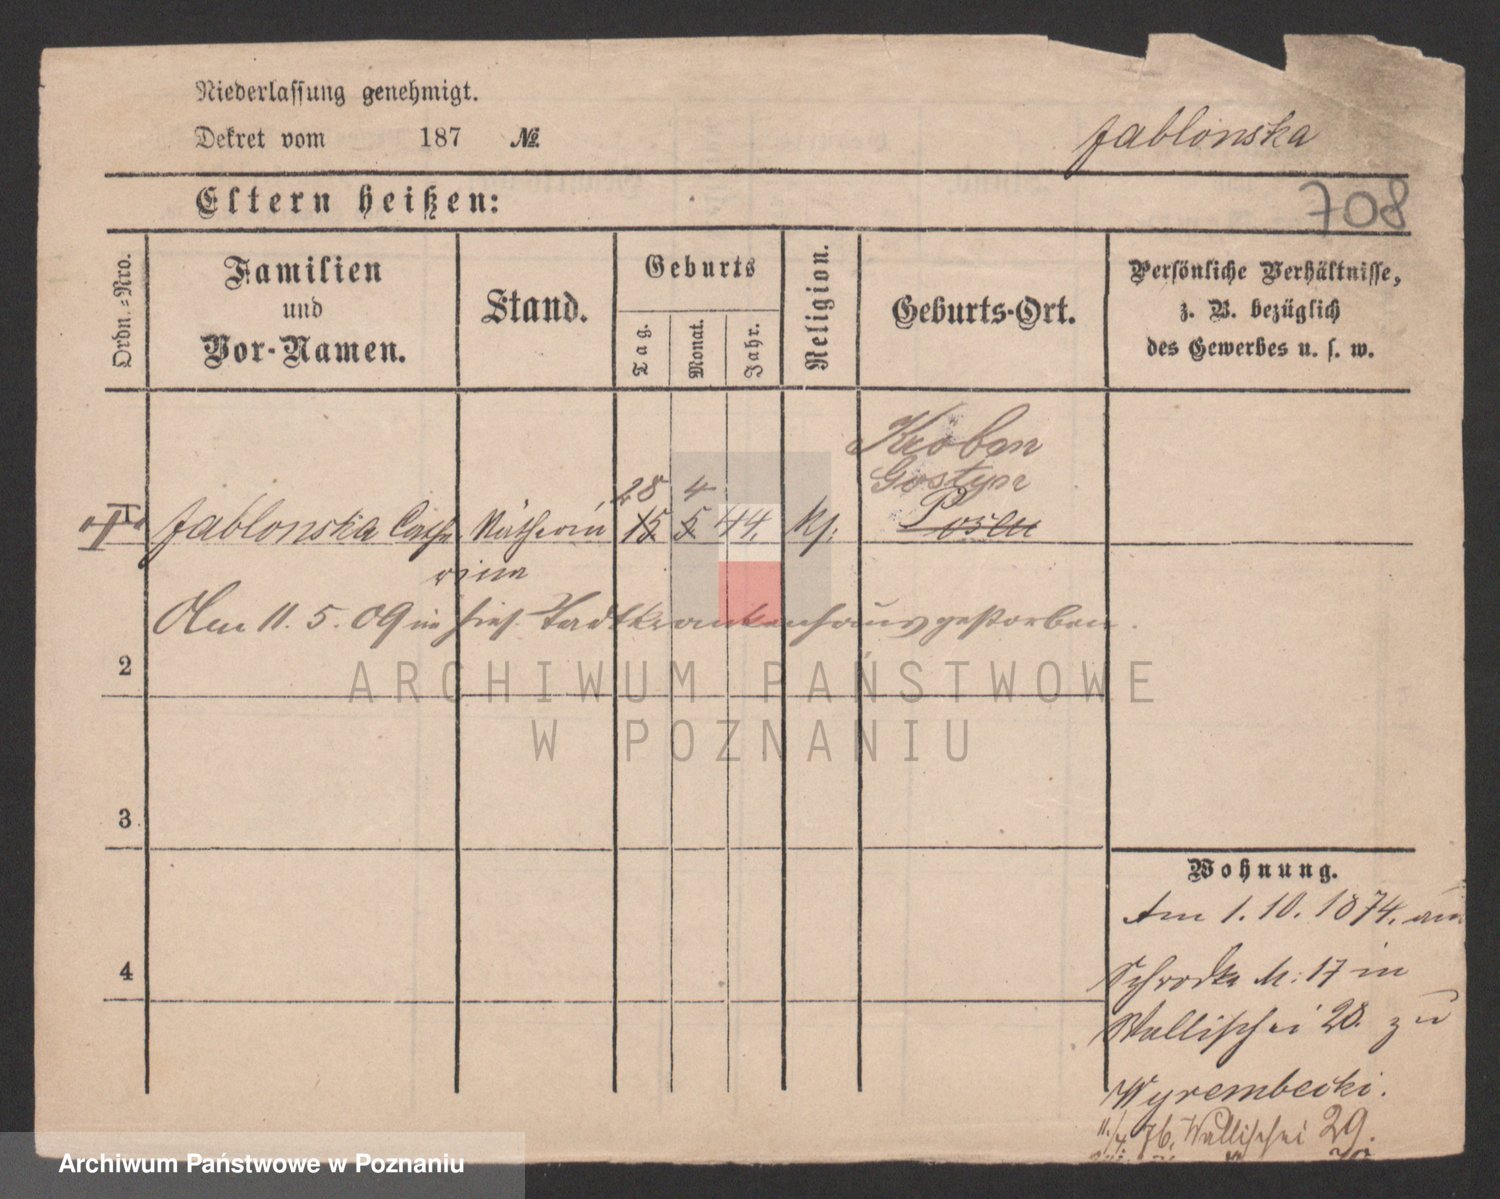 Niederlassung genehmigt.
Dekret vom 187 №
Jablonska
708
Eltern heißen:
Ordn.-Nro.
Familien
und
Vor-Namen.
Stand.
Geburts
Tag.
Monat.
Jahr.
Religion.
Geburts-Ort.
Persönliche Verhältnisse,
z. B. bezüglich
des Gewerbes u. s. w.
Kröben
Gostyn
28 4
1 Jablonska Cathe 15 5 44. kf. Posen
rina
Am 11. 5. 09 im hies. Stadtkrankenhaus gestorben.
2
ARCHIWUM PAŃSTWOWE
W POZNANIU
3
4
Wohnung.
Am 1. 10. 1874. aus
Schrodka N: 17 in
Wallischei 28. zu
Wyrembecki.
11/4 76. Wallischei 29.
Archiwum Państwowe w Poznaniu